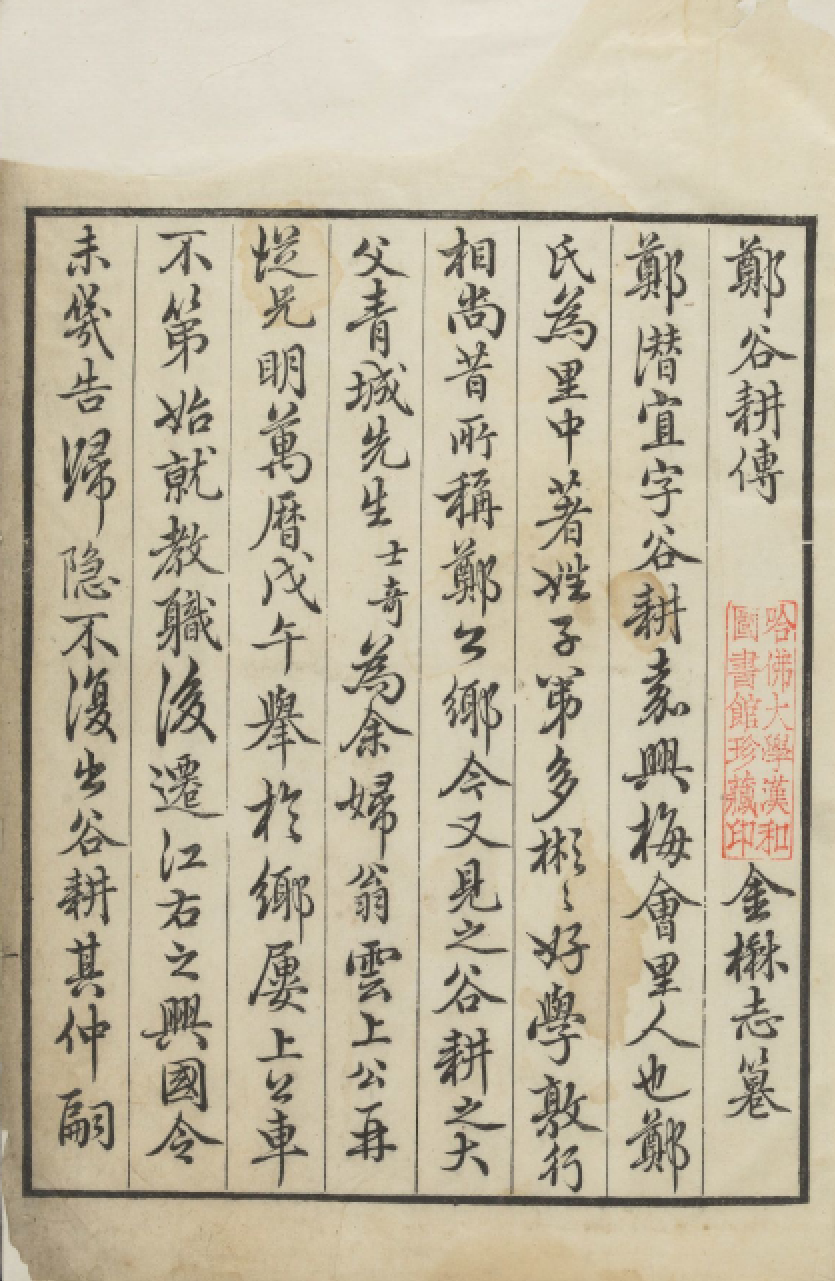 鄭谷耕傳
哈佛大學漢和
圖書館珍藏印
金楙志篹
鄭潛宜字谷耕嘉興梅會里人也鄭
氏為里中著姓子第多彬〻好學敦行
相尚昔所稱鄭公鄉今又見之谷耕之大
父青城先生士奇為余婦翁雲上公再
從兄明萬曆戊午舉於鄉屢上公車
不第始就教職後遷江右之興國令
未幾告歸隐不復出谷耕其仲嗣